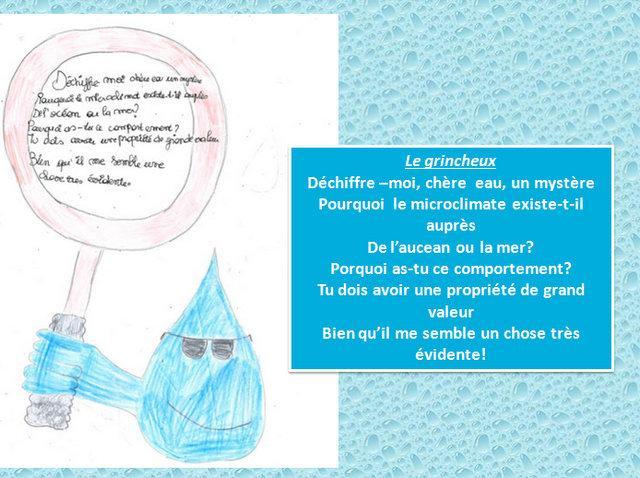 Déchiffre moi chère eau un mystère
Pourquoi le microclimat existe-t-il auprès
De l'océan ou la mer?
Pourquoi as-tu ce comportement?
Tu dois avoir une propriété de grande valeur
Bien qu'il me semble une
chose très évidente.
Le grincheux
Déchiffre –moi, chère eau, un mystère
Pourquoi le microclimate existe-t-il
auprès
De l'aucean ou la mer?
Porquoi as-tu ce comportement?
Tu dois avoir une propriété de grand
valeur
Bien qu'il me semble un chose très
évidente!